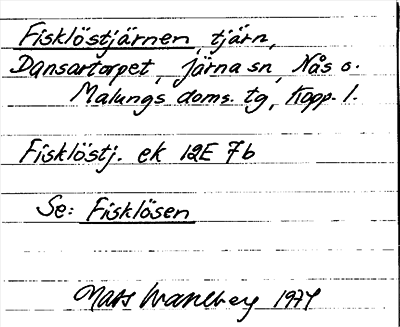 Fisklöstjärnen, tjärn,
Dansartorpet, Järna sn, Nås o.
Malungs doms. tg, Kopp. l.
Fisklöstj. ek 12E 7b
Se: Fisklösen
Mats Wahlberg 1974